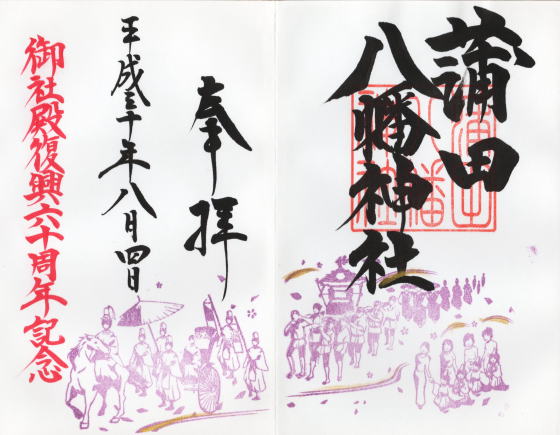 蒲田
八幡神社
奉拝
平成三十年八月四日
御社殿復興六十周年記念